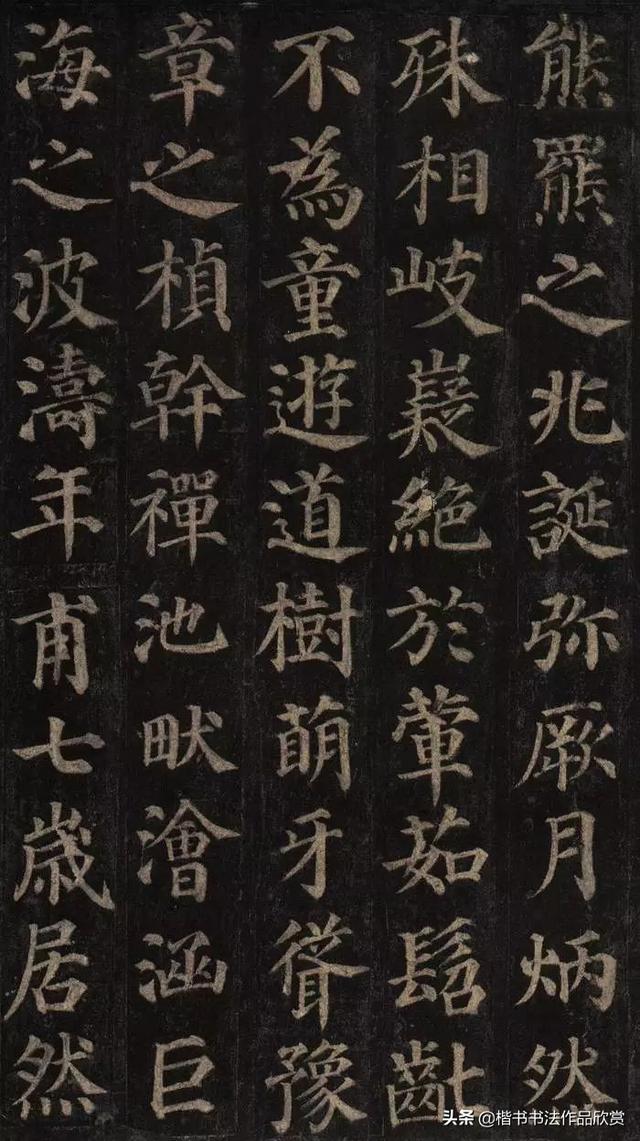 熊羆之兆誕弥厥月炳然
殊相岐嶷絶於葷茹髫齔
不為童遊道樹萌牙聳豫
章之楨幹禪池畎澮涵巨
海之波濤年甫七歲居然
头条@楷书书法作品欣赏